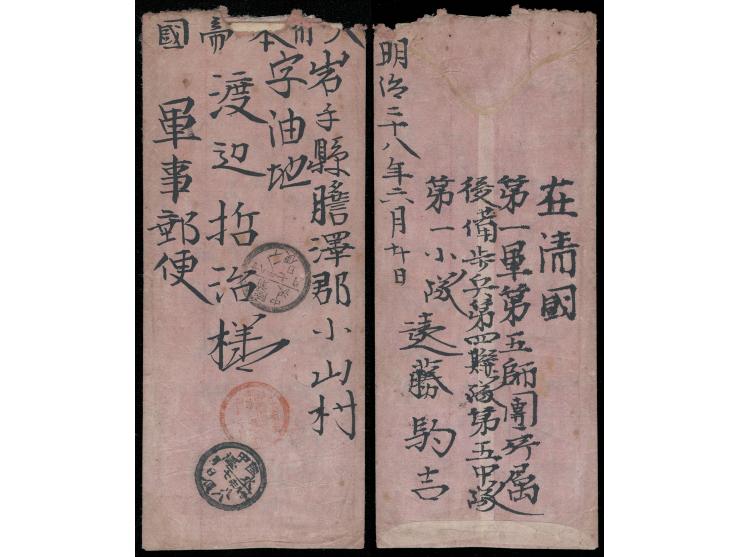 大日本帝國
岩手縣膽澤郡小山村
字油地
渡辺哲治様
軍事郵便
在清國
第一軍第五師團所属
後備歩兵第四聯隊第五中隊
第一小隊
遠藤駒吉
明治二十八年二月廿日